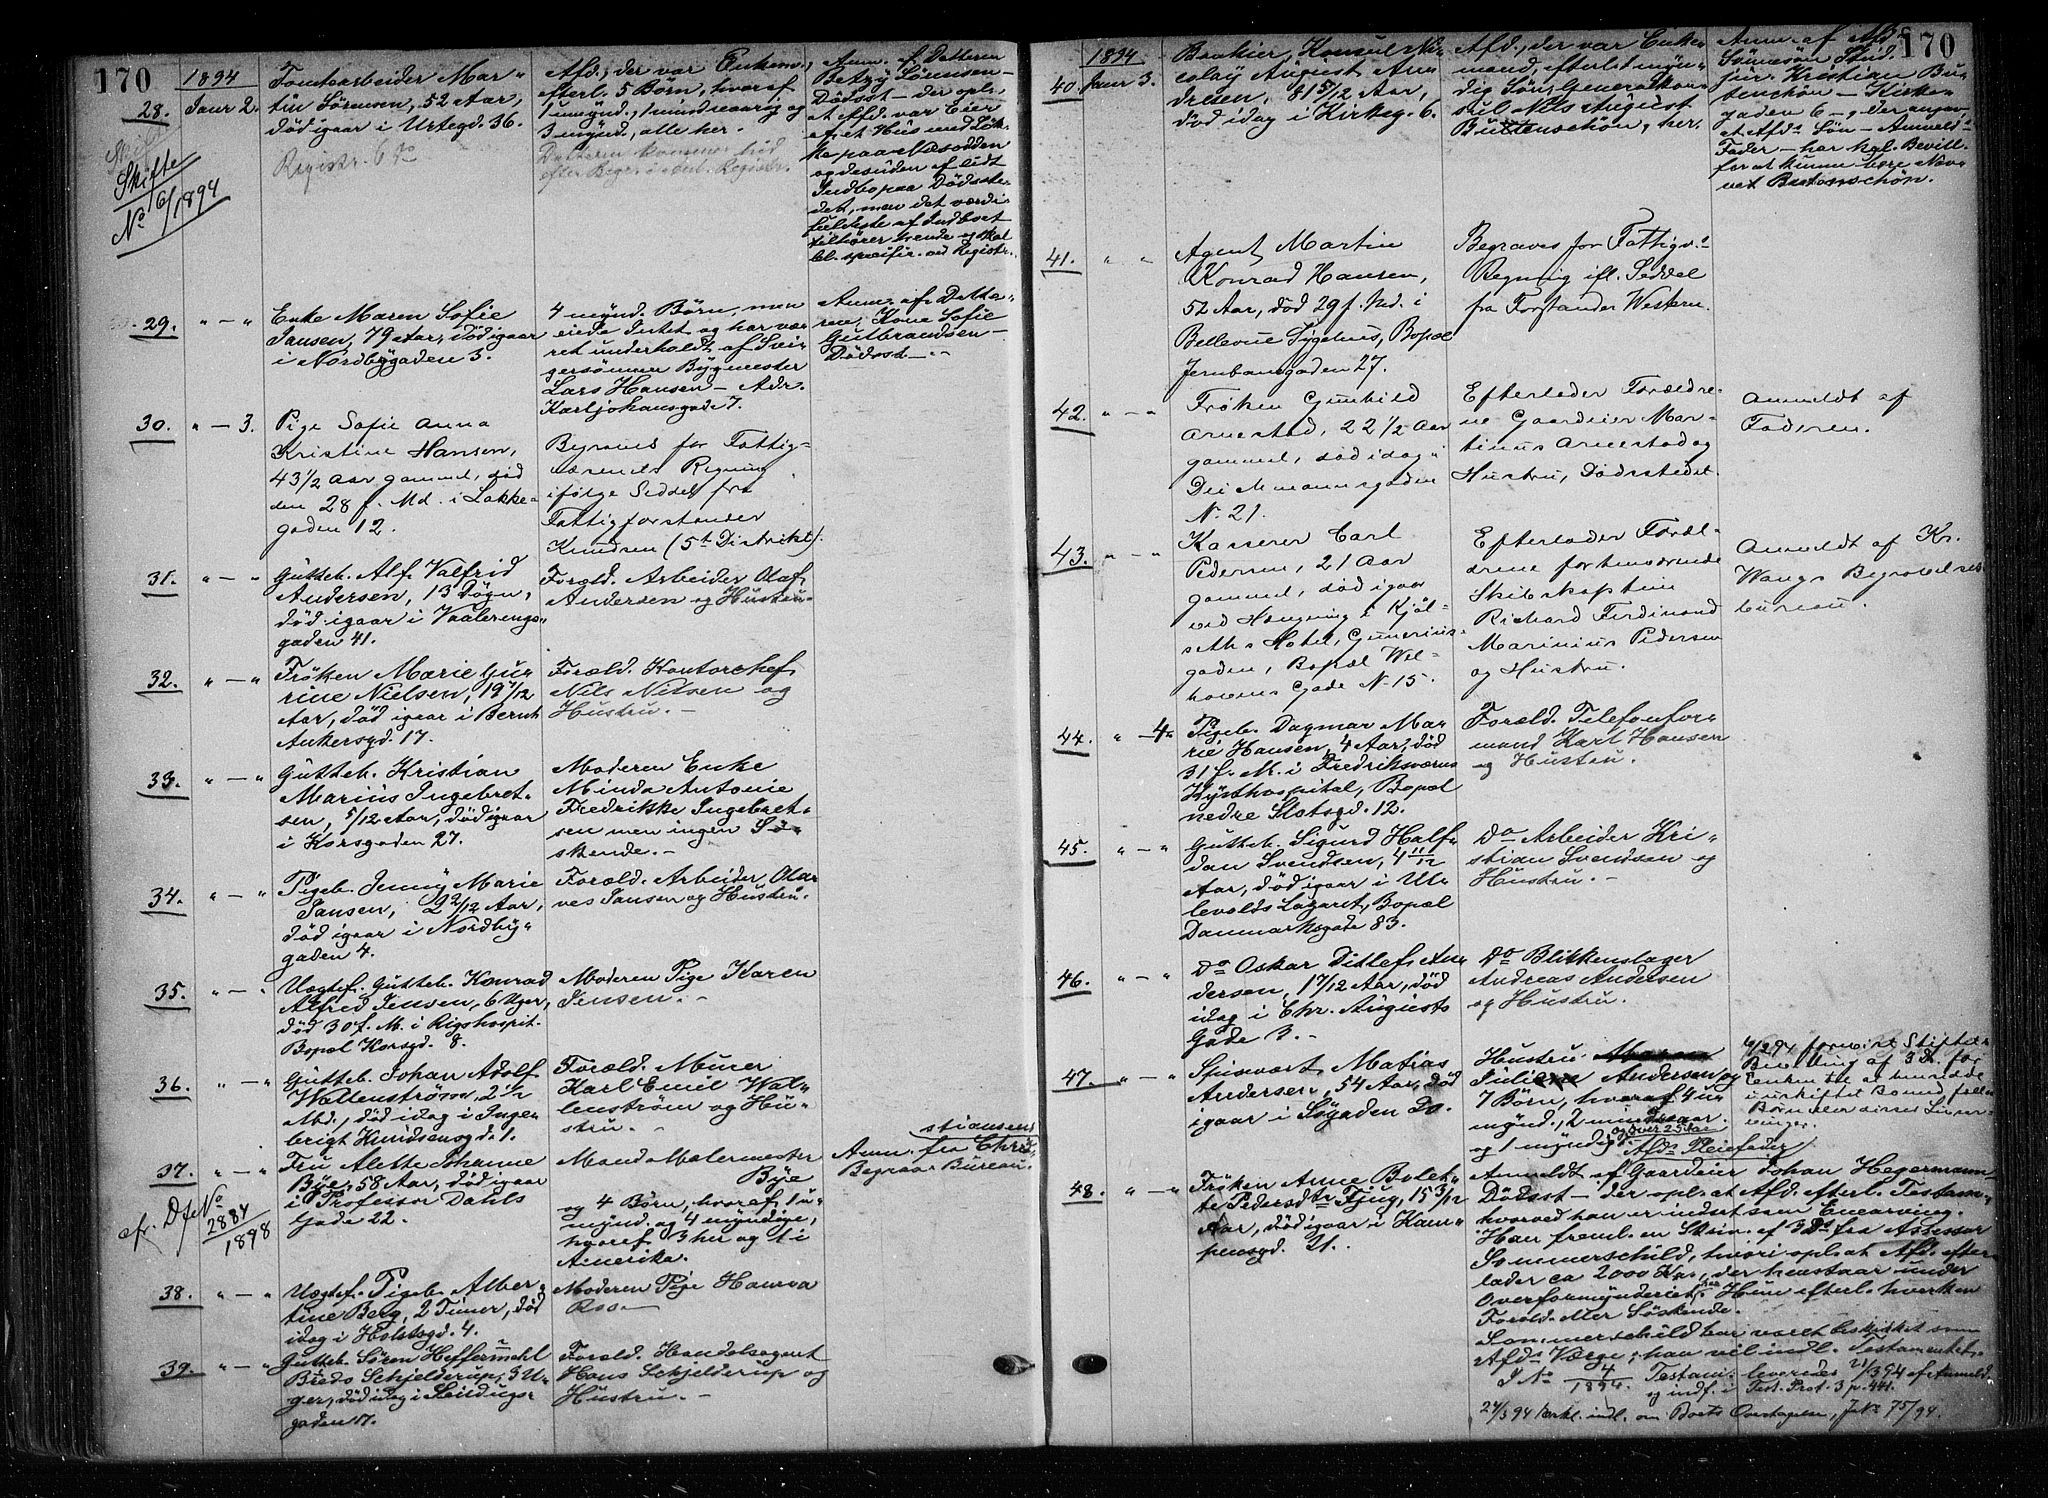 170
1894
28. Janr 2.
Tomtearbeider Mar-
tin Sörensen, 52 Aar,
död igaar i Urtegd. 36.
Registr. 6 Kr
Skifte
No 16/1894
Afd., der var Enkem.,
efterl. 5 Börn, hvoraf
1 umynd., 1 mindreaarig og
3 mynd., alle her.
Datteren kommer hid
efter Begr.
Anm. af Datteren
Betzy Sörensen
Dödsst. — der opl.
at Afd. var Eier
af et Hus med Løk-
ke paa Næsodden
og desuden af lidt
Indbo paa Dödsste-
det, men det værdi-
fuldeste af Indboet
tilhører hende og skal
bl. specifir. ved Registr.
29. " — "
Enke Maren Sofie
Jansen, 79 Aar, död igaar
i Nordbygaden 3.
4 mynd. Börn, men
eiede Intet og har væ-
ret underholdt af Svi-
gersönnen Bygmester
Lars Hansen — Adr.
Karljohansgade 7.
Anm. af Datte-
ren, Kone Sofie
Gulbrandsen —
Dödsst. —
30. " — 3.
Pige Sofie Anna
Kristine Hansen,
43 1/2 Aar gammel, död
den 28 f. Md. i Lakke-
gaden 12.
Begraves for Fattig-
væsenets Regning
ifølge Seddel fra
Fattigforstander
Knudsen (5te Distrikt).
31. " — "
Gutteb. Alf Valfrid
Andersen, 13 Dögn,
död igaar i Vaalerengs-
gaden 41.
Foræld. Arbeider Olaf
Andersen og Hustru.
32. " — "
Fröken Marie Gu-
rine Nielsen, 19 7/12
Aar, död igaar i Bernt
Ankersgd. 17.
Foræld. Kontorchef
Nils Nielsen og
Hustru. —
33. " — "
Gutteb. Kristian
Marius Ingebret-
sen, 5/12 Aar, död igaar
i Korsgaden 27.
Moderen Enke
Minda Antonie
Fredrikke Ingebret-
sen men ingen Sö-
skende. —
34. " — "
Pigeb. Jenny Marie
Jansen, 2 2/12 Aar,
död igaar i Nordby-
gaden 4.
Foræld. Arbeider Ola-
ves Jansen og Hustru.
35. " — "
Uægtef. Gutteb. Konrad
Alfred Jensen, 6 Uger,
död 30 f. M. i Rigshospit.
Bopæl Korsgd. 8.
Moderen Pige Karen
Jensen. —
36. " — "
Gutteb. Johan Adolf
Wallenström, 2 1/2
Md., död idag i Inge-
brigt Knudsensgd. 1.
Foræld. Murer
Karl Emil Wal-
lenström og Hu-
stru. —
37. " — "
Fru Alette Johanne
Bÿe, 58 Aar, död igaar
i Professor Dahls
Gade 22.
cfr. Df No
2884/1898
Mand Malermester
Bÿe
og 4 Börn, hvoraf 1 u-
mynd. og 4 myndige,
hvoraf 3 her og 1 i
Amerika.
Anm. fra Chri-
stiansens
Begrav. Bureau.
38. " — "
Uægtef. Pigeb. Alber-
tine Berg, 2 Timer, död
idag i Holstsgd. 4.
Moderen Pige Hanna
Roo —
39. " — "
Gutteb. Sören Heffermehl
Bredo Schjelderup, 3 U-
ger, död idag i
gaden 17.
Foræld. Handelsagent
Hans Schjelderup og
Hustru. —
170
1894
40. Janr 3.
Bankier, Konsul Ni-
colaÿ August An-
dresen, 81 5/12 Aar,
död idag i Kirkeg. 6.
Afd., der var Enke-
mand, efterlod myn-
dig Sön, Generalkon-
sul Nils August
Buttenschön, her.
Anm. af Afd.
Sönnesön Stud.
jur. Kristian But-
tenschön — Kirke-
gaden 6 —, der angav
at Afd.s Sön — Anmeld.s
Fader — har kgl. Bevill.
for at kunne bære Nav-
net Buttenschön.
41. " "
Agent Martin
Konrad Hansen,
52 Aar, död 29 f. Md. i
Bellevue Sygehus, Bopæl
Jernbanegaden 27.
Begraves for Fattigv.s
Regning ifl. Seddel
fra Forstander Western.
42. " — "
Fröken Gunhild
Arnestad, 22 1/2 Aar
gammel, död idag i
Deichmannsgaden
No 21.
Efterlader Forældre-
ne Gaardeier Mar-
tinus Arnestad og
Hustru, Dödsstedet.
Anmeldt af
Faderen.
43. " — "
Kasserer Carl
Pedersen, 21 Aar
gammel, död igaar
ved Hængning i Kjöl-
seths Hotel, Gunerius-
gaden, Bopæl Wel-
havens Gade No 15.
Efterlader Foræl-
drene forhenværende
Skibskaptein
Richard Ferdinand
Marinius Pedersen
og Hustru.
Anmeldt af Kr.
Wangs Begravelses-
bureau.
44. " — 4.
Pigeb. Dagmar Ma-
rie Hansen, 4 Aar, död
31 f. M. i Fredriksværns
Kysthospital, Bopæl
nedre Slotsgd. 12.
Foræld. Telefonfor-
mand Karl Hansen
og Hustru.
45. " — "
Gutteb. Sigurd Half-
dan Svendsen, 4 11/12
Aar, död igaar i Ul-
levolds Lazaret, Bopæl
Danmarksgade 83.
Do Arbeider Kri-
stian Svendsen og
Hustru. —
46. " — "
Do Oskar Ditlef An-
dersen, 1 7/12 Aar, död
idag i Chr. Augusts
Gade 3. —
Do Blikkenslager
Andreas Andersen
og Hustru.
47. " — "
Spisevært Matias
Andersen, 54 Aar, död
igaar i Søgaden 30.
Hustru
Juliane Andersen og
7 Börn, hvoraf 4 u-
mynd., 2 mindreaar.
og 1 myndig.
og over 25 Aar
Afd.s Pleiefader
for
Enken til at hensidde
i uskiftet Bo med fælles
Börn eller disses Livsar-
vinger.
48. " — "
Fröken Anne Bolet-
te Pedersdtr Tjug, 15 3/12
Aar, död igaar i Kam-
pensgd. 21.
Anmeldt af Gaardeier Johan Hegermann
Dödsst. — der opl. at Afd. efterl. Testam.
hvorved han er indsat som Enearving.
Han freml. en Skriv. af 3 Ds fra Assessor
Sommerschild, hvori opl. at Afd. efter-
lader ca 2000 Kr, der henstaar under
Overformynderiet. Hun efterl. hverken
Foræld. eller Söskende.
Sommerschild har været beskikket som
Afd.s Værge; han vil indl. Testamentet.
J No 4/1894. Testam. leveredes 21/3 94 af Anmeld.
og indf. i Test. Prot. 3 p. 441.
24/3 94 Erkl. indl. om Boets Overtagelse, J No 75/94.